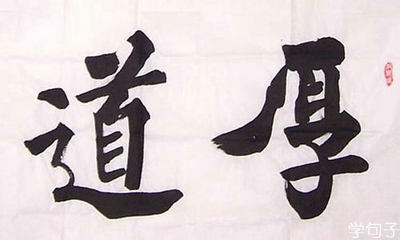 厚道
学句子